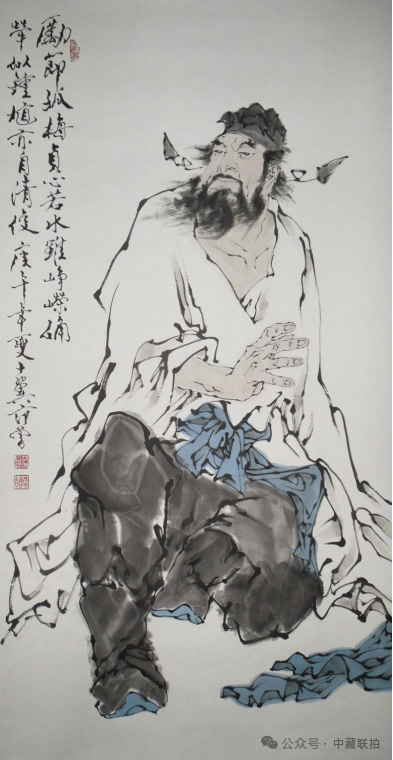 勵節孤梅貞心若水雖崢嶸确
犖似鍾馗亦自清俊庚午十翼范曾
公众号 · 中藏联拍